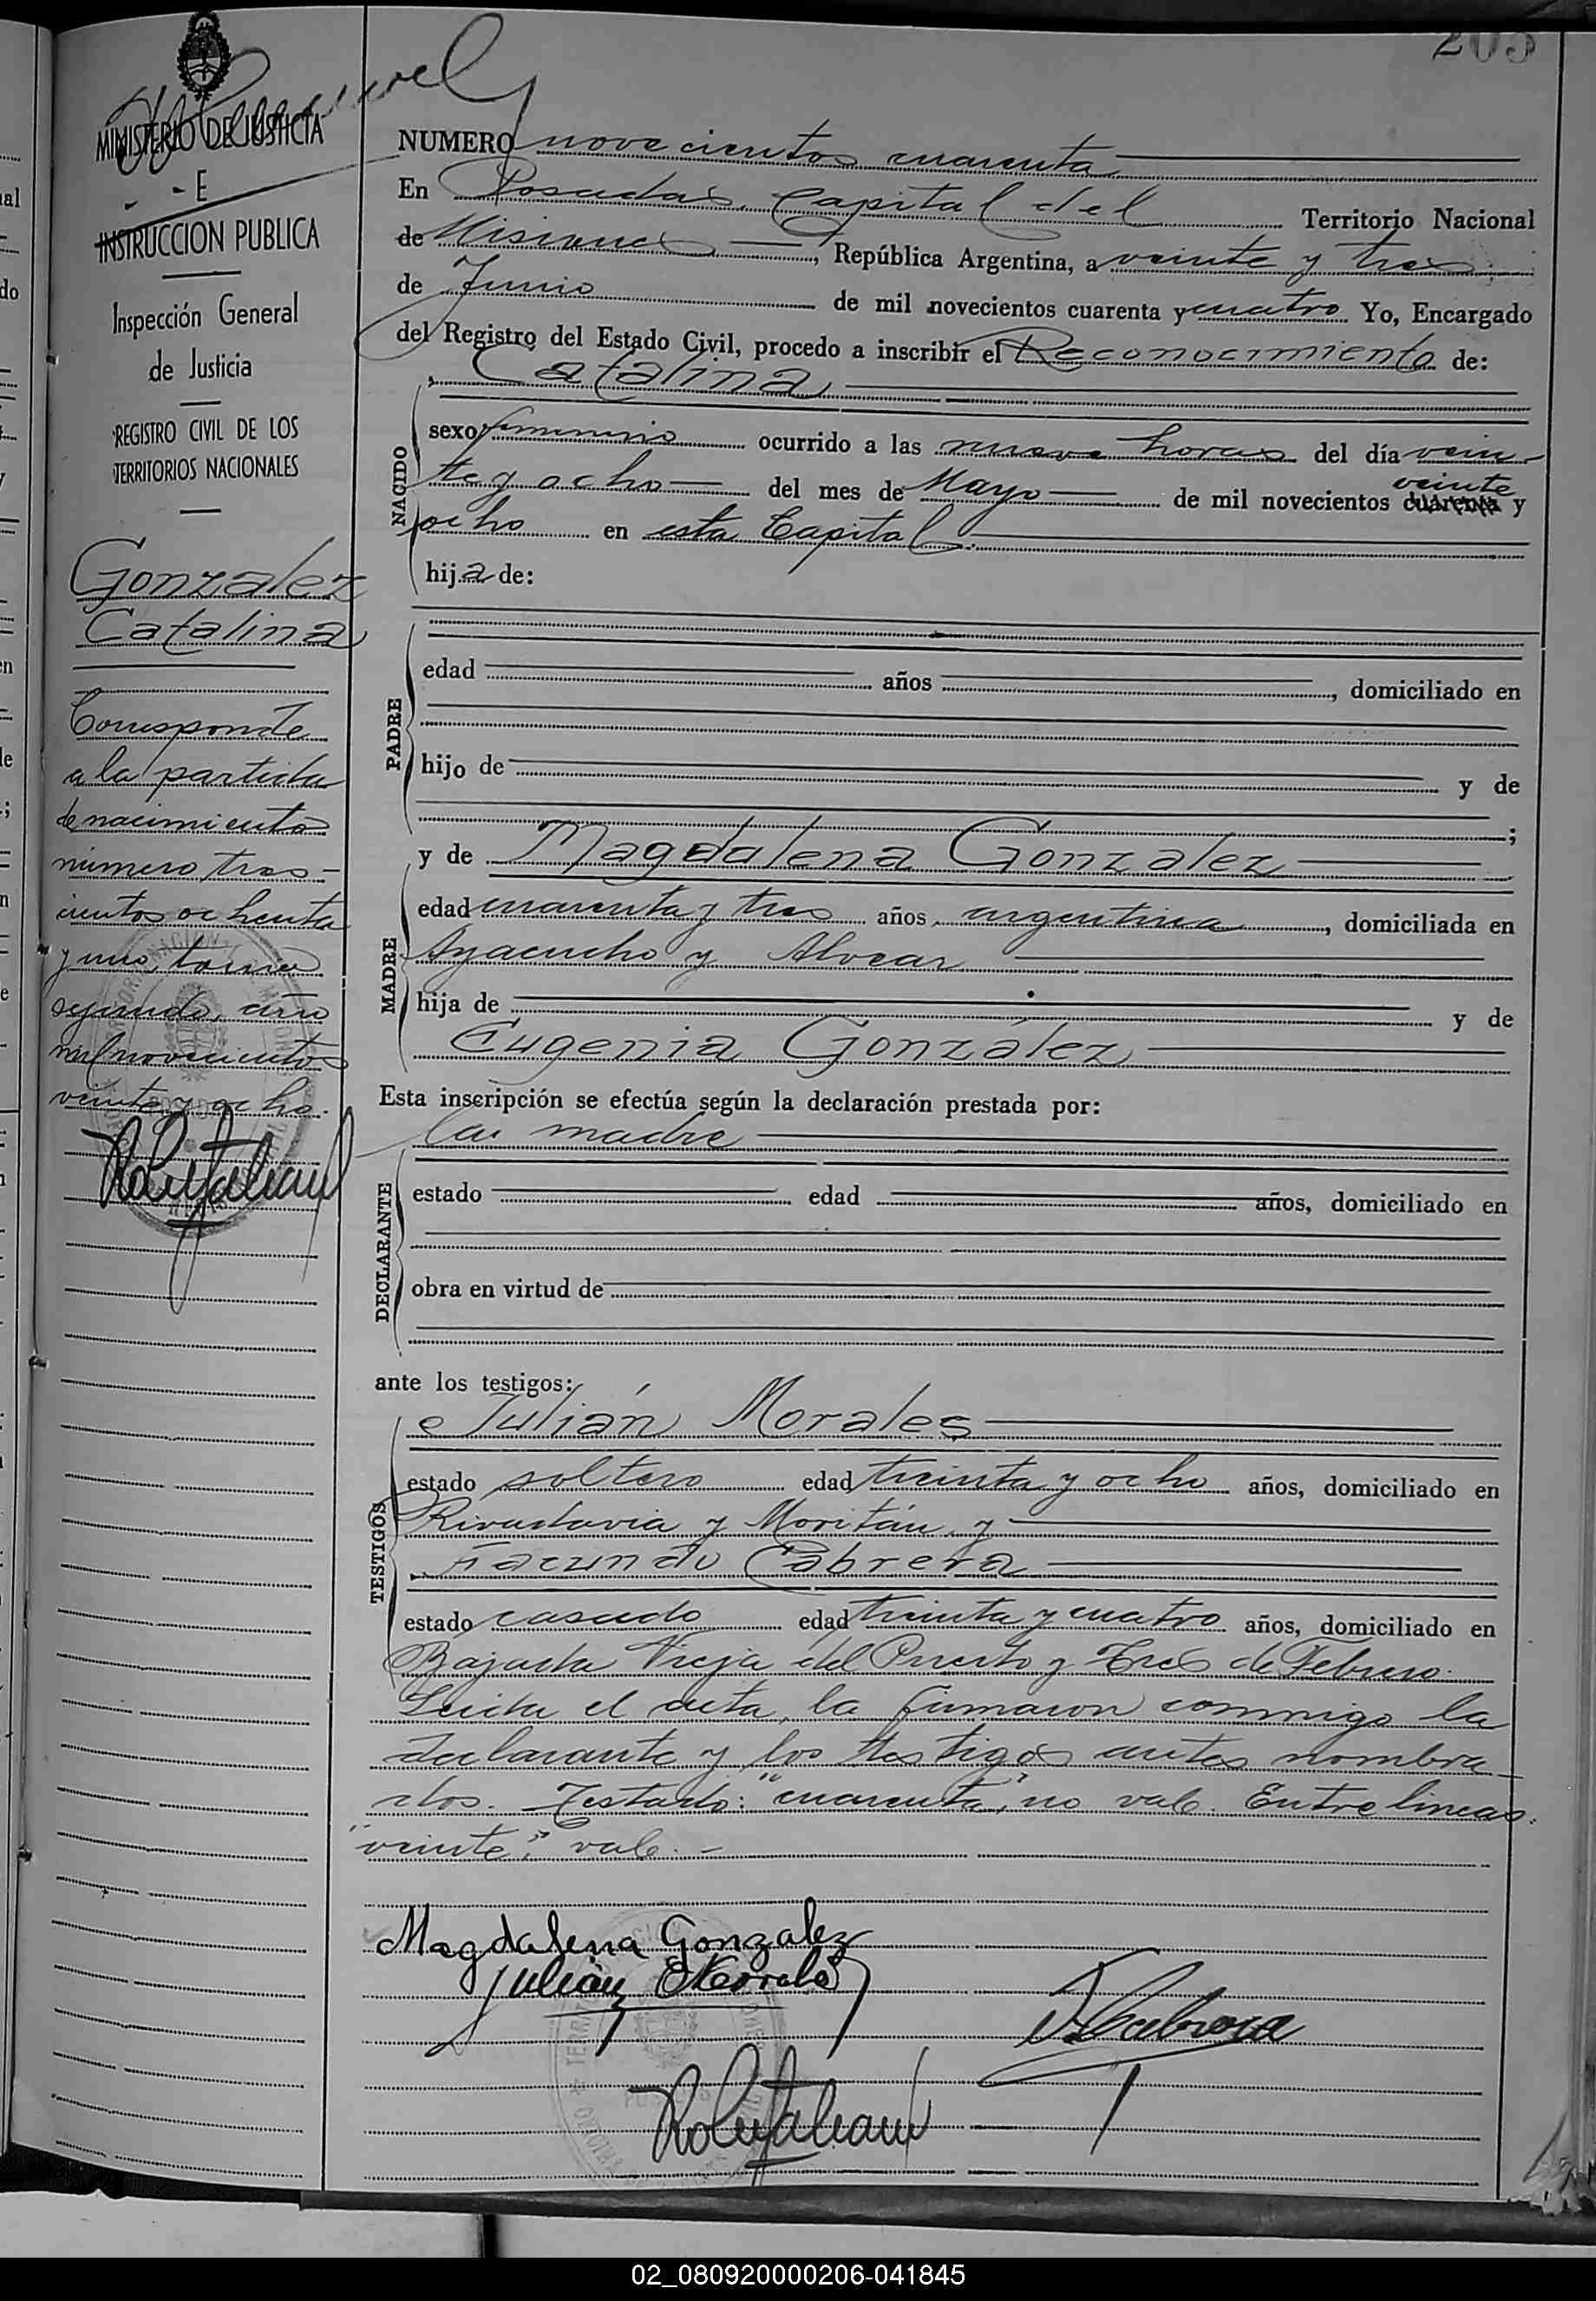 205
MINISTERIO DE JUSTICIA
- E
INSTRUCCION PUBLICA
Inspección General
de Justicia
REGISTRO CIVIL DE LOS
TERRITORIOS NACIONALES
Gonzalez
Catalina
Corresponde
a la partida
de nacimiento
número tres-
cientos ochenta
y uno, tomo
segundo, año
mil novecientos
veinte y ocho.
NUMERO novecientos cuarenta
En Posadas, Capital del Territorio Nacional
de Misiones, República Argentina, a veinte y tres
de Junio de mil novecientos cuarenta y cuatro Yo, Encargado
del Registro del Estado Civil, procedo a inscribir el Reconocimiento de:
Catalina
NACIDO
sexo femenino ocurrido a las nueve horas del día vein-
te y ocho del mes de Mayo de mil novecientos cuarenta veinte y
ocho en esta Capital.
hija de:
PADRE
edad años, domiciliado en
hijo de y de
;
MADRE
y de Magdalena Gonzalez
edad cuarenta y tres años, argentina, domiciliada en
Ayacucho y Alvear
hija de y de
Eugenia González
Esta inscripción se efectúa según la declaración prestada por:
la madre
DECLARANTE
estado edad años, domiciliado en
obra en virtud de
ante los testigos:
TESTIGOS
Julián Morales
estado soltero edad treinta y ocho años, domiciliado en
Rivadavia y Moritán y
Facundo Cabrera
estado casado edad treinta y cuatro años, domiciliado en
Bajada Vieja del Puerto y Tres de Febrero.
Leída el acta, la firmaron conmigo la
declarante y los testigos antes nombra-
dos. Testado: "cuarenta", no vale. Entre lineas:
"veinte", vale.-
Magdalena Gonzalez
Julian Morales
Cabrera
02_080920000206-041845